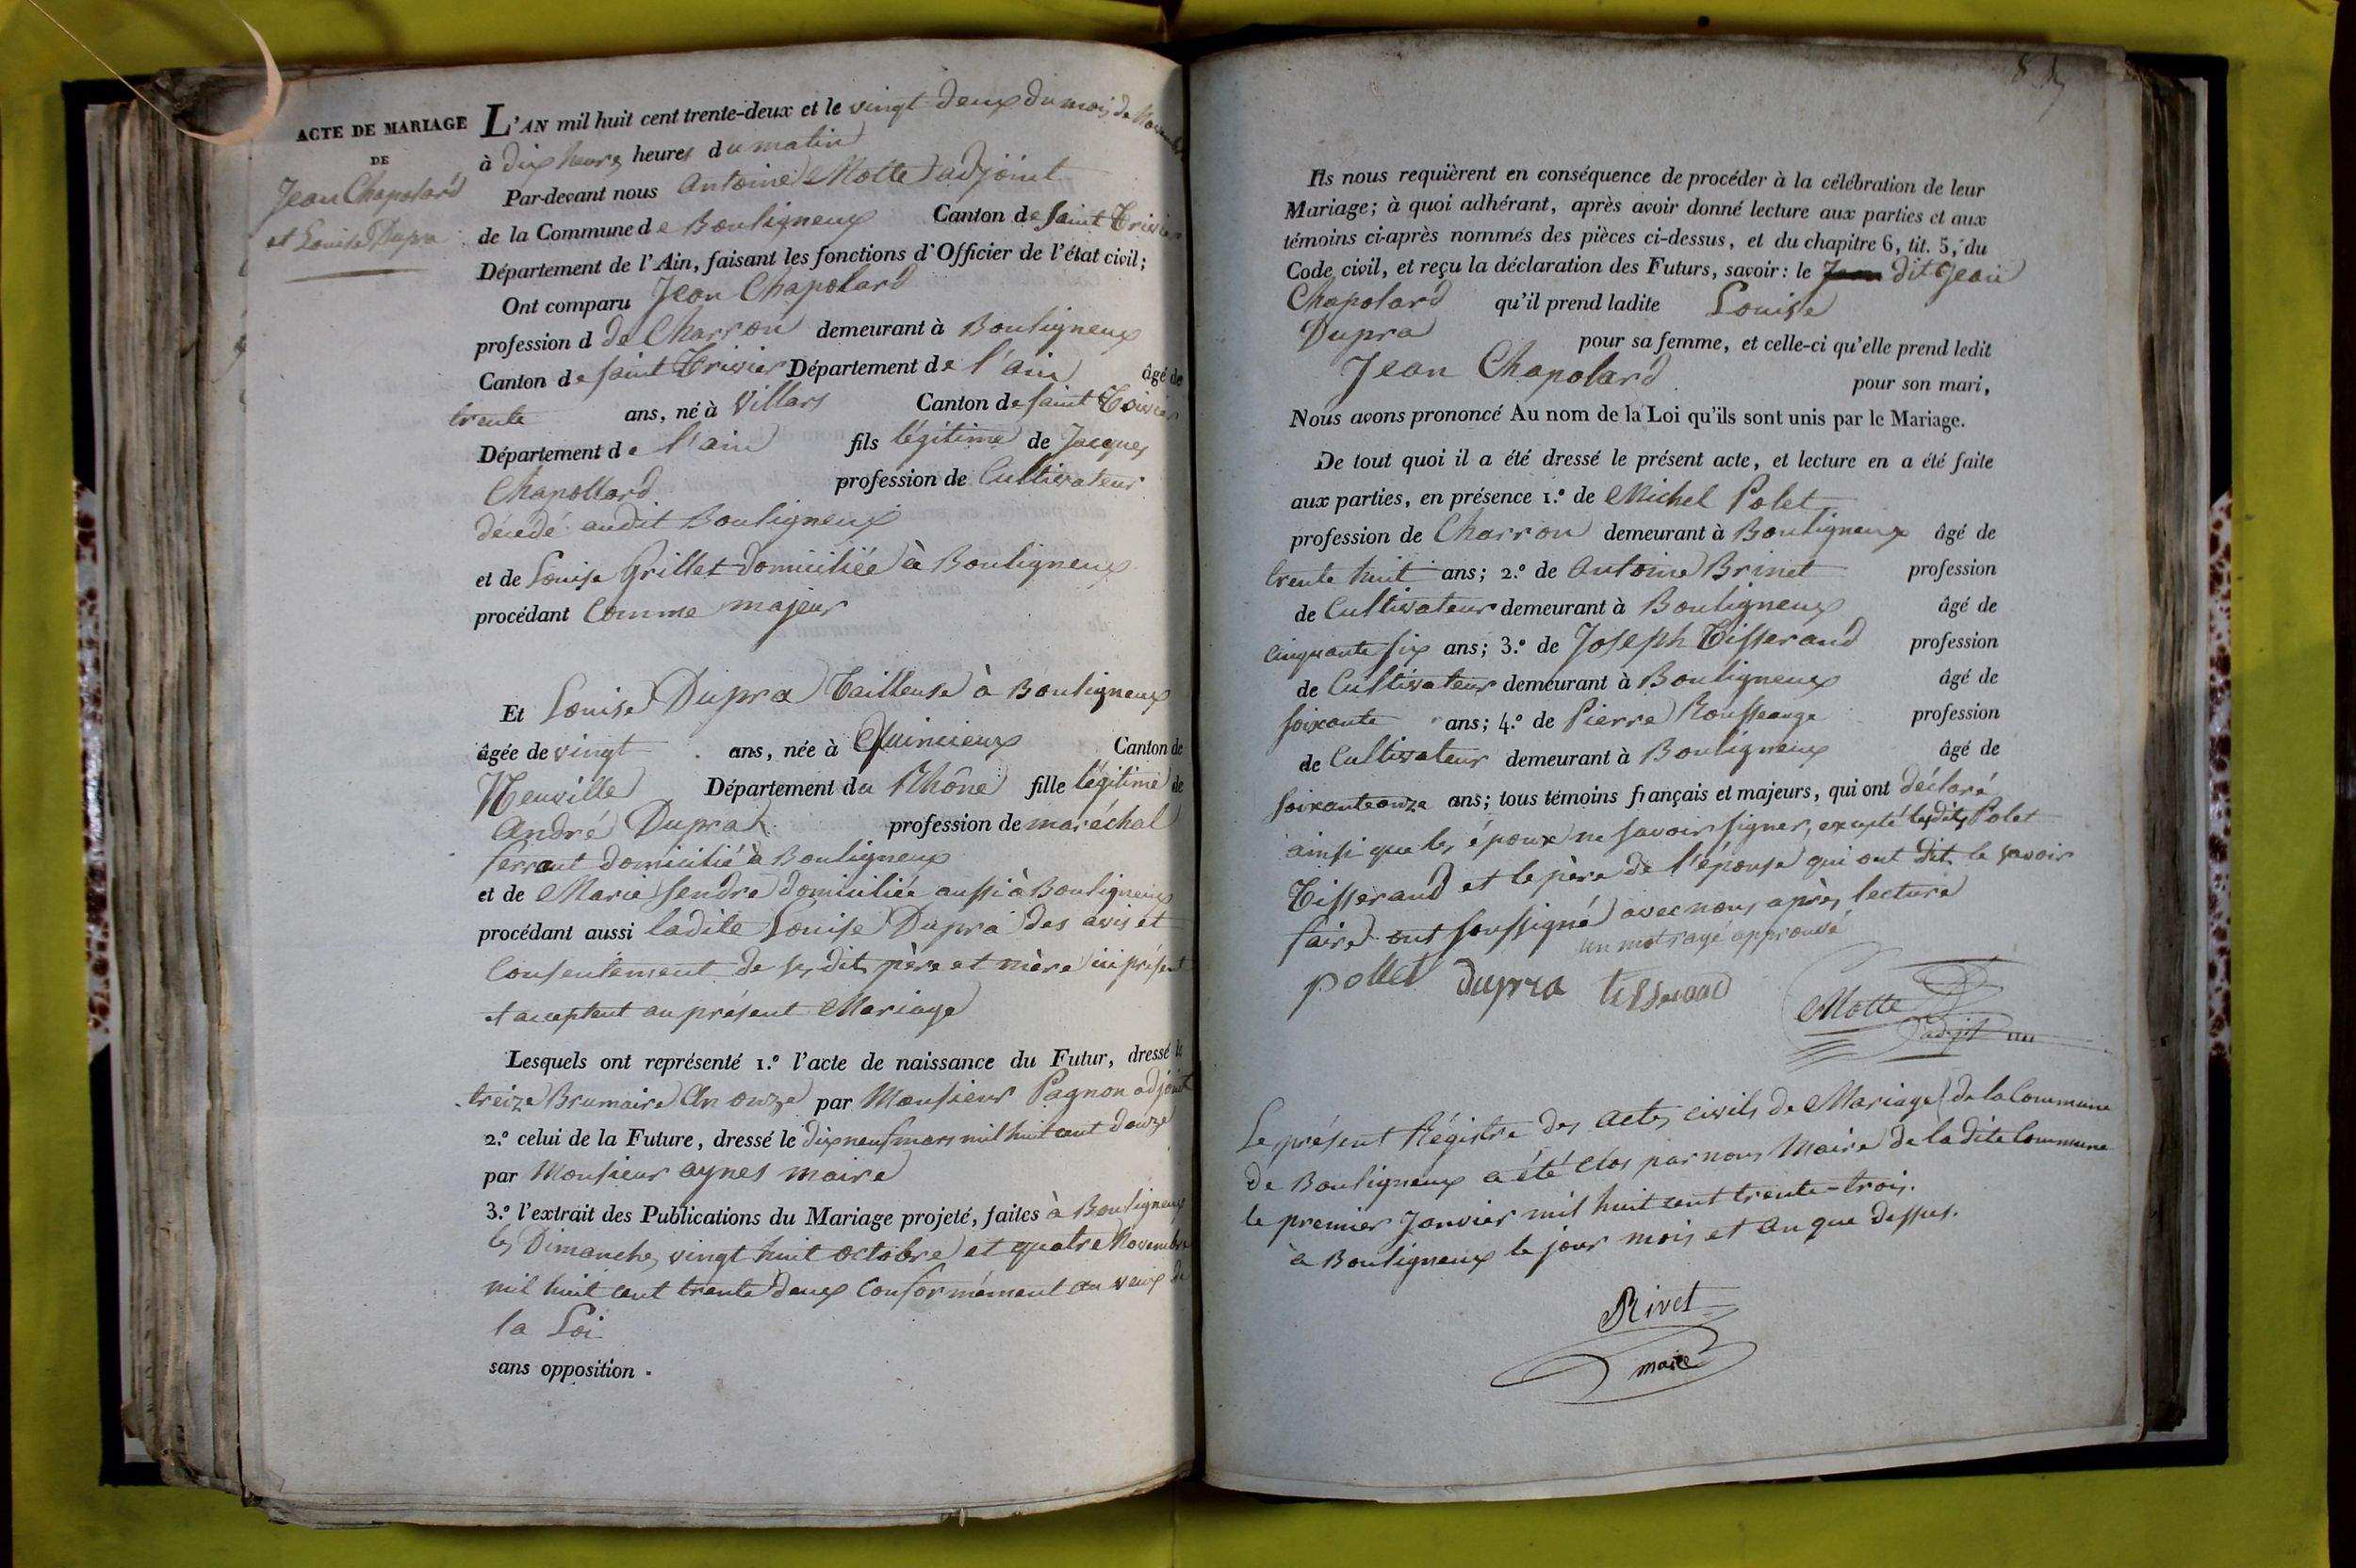 ACTE DE MARIAGE
DE
Jean Chapolard
et Louise Dupra
L'AN mil huit cent trente-deux et le vingt deux du mois de Novembre
à dix heures heures du matin
Par-devant nous Antoine Motte adjoint
de la Commune de Bouligneux Canton de Saint Trivier
Département de l'Ain, faisant les fonctions d'Officier de l'état civil;
Ont comparu Jean Chapolard
profession d de Charron demeurant à Bouligneux
Canton de Saint Trivier Département de l'ain âgé de
trente ans, né à Villars Canton de Saint Trivier
Département de l'ain fils légitime de Jacques
Chapollard profession de Cultivateur
décédé audit Bouligneux
et de Louise Grillet domiciliée à Bouligneux
procédant Comme majeur
Et Louise Dupra Tailleuse à Bouligneux
âgée de vingt ans, née à Quincieux Canton de
Neuville Département du Rhône fille légitime de
André Dupra profession de maréchal
ferrant domicilié à Bouligneux
et de Marie Sendra domiciliée aussi à Bouligneux
procédant aussi ladite Louise Dupra des avis et
Consentement de ses dits père et mère ici présent
et acceptent au présent Mariage
Lesquels ont représenté 1.º l'acte de naissance du Futur, dressé le
treize Brumaire An onze par Monsieur Pagnon adjoint
2.º celui de la Future, dressé le dix neuf mars mil huit cent douze
par Monsieur aynes maire
3.º l'extrait des Publications du Mariage projeté, faites à Bouligneux
les Dimanches vingt huit octobre et quatre Novembre
mil huit cent trente deux Conformément au veux de
la Loi
sans opposition.
Ils nous requièrent en conséquence de procéder à la célébration de leur
Mariage; à quoi adhérant, après avoir donné lecture aux parties et aux
témoins ci-après nommés des pièces ci-dessus, et du chapitre 6, tit. 5, du
Code civil, et reçu la déclaration des Futurs, savoir: le dit Jean
Chapolard qu'il prend ladite Louise
Dupra pour sa femme, et celle-ci qu'elle prend ledit
Jean Chapolard pour son mari,
Nous avons prononcé Au nom de la Loi qu'ils sont unis par le Mariage.
De tout quoi il a été dressé le présent acte, et lecture en a été faite
aux parties, en présence 1.º de Michel Polet
profession de Charron demeurant à Bouligneux âgé de
trente huit ans; 2.º de Antoine Brinet profession
de Cultivateur demeurant à Bouligneux âgé de
cinquante six ans; 3.º de Joseph Tisserand profession
de Cultivateur demeurant à Bouligneux âgé de
soixante ans; 4.º de Pierre Rousseauge profession
de Cultivateur demeurant à Bouligneux âgé de
soixante onze ans; tous témoins français et majeurs, qui ont déclaré
ainsi que les époux ne savoir signer, excepté lesdits Polet
Tisserand et le père de l'épouse qui ont dit le savoir
faire ont soussigné avec nous après lecture
un mot rayé approuvé
pollet dupra tisserand
Motte
adjt
Le présent Régistre des actes civils de Mariage de la Commune
de Bouligneux a été clos par nous Maire de la dite Commune
le premier Janvier mil huit cent trente-trois.
à Bouligneux le jour mois et an que dessus.
Rivet
maire